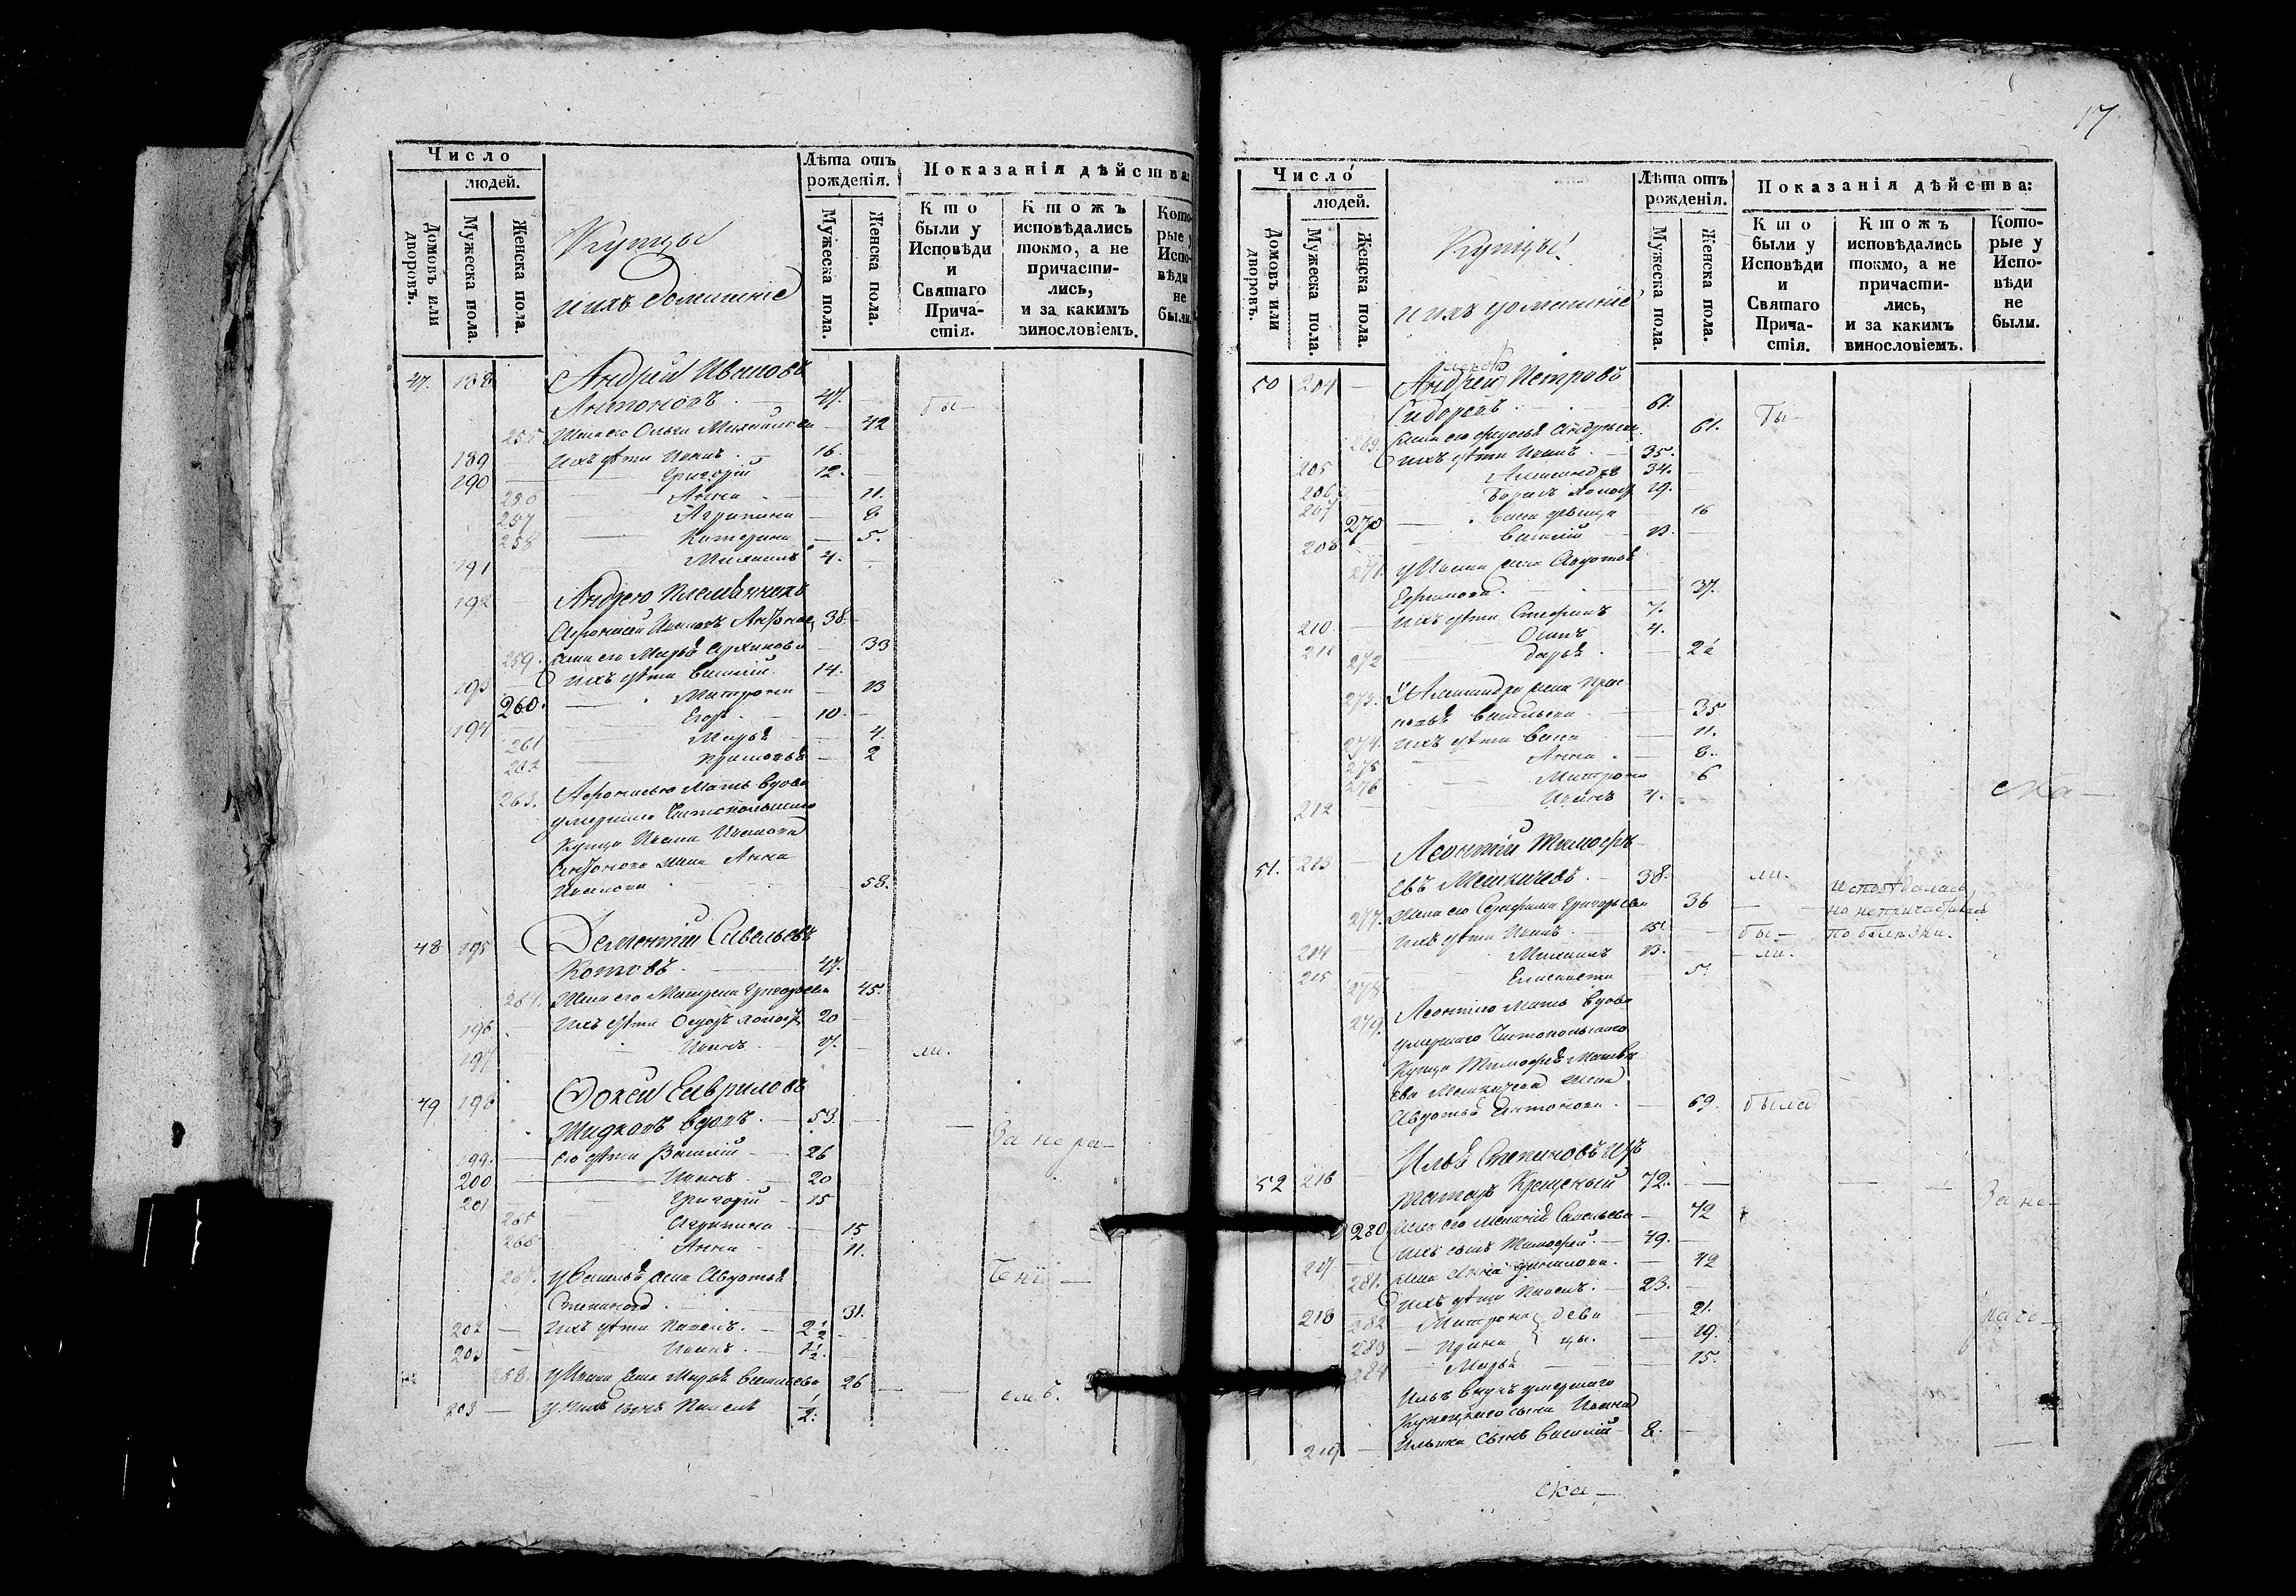 Число
людей.
Домовъ или дворовъ.
Мужеска пола.
Женска пола.
Купцы
и ихъ домашніе
Лѣта отъ рожденія.
Мужеска пола.
Женска пола.
Показанія дѣйства:
Кто были у Исповѣди и Святаго Прича-стія.
Ктожъ исповѣдались токмо, а не причасти-лись, и за какимъ винословіемъ.
Кото-рые у Испо-вѣди не были.
47. 188 Андрей Ивановъ
Антоновъ 47. бы-
255 Жена его Ольга Михайлова 42
189 Ихъ дѣти Иванъ 16.
190 Григорій 12.
256 Анна 11.
257 Агрипина 8
258 Катерина 5.
191 Михаилъ 4.
192 Андрею племянникъ
Афонасій Ивановъ Антоновъ 38.
259. Жена его Марья Архипова 33
193 Ихъ дѣти Василій 14.
260. Матрона 13
194 Егоръ 10.
261 Марья 4.
262 Прасковья 2
263. Афонасью мать вдова
умершаго Чистопольскаго
Купца Ивана Иванова
Антонова жена Анна
Иванова 58.
48 195 Дементій Савельевъ
Котовъ 47.
264. Жена его Матрена Григорьева 45.
196 Ихъ дѣти Федоръ холостъ 20
197 Иванъ 17. ли.
49 198 Фокей Гавриловъ
Жидковъ вдовъ 53. За нера-
199. его дѣти Василій 26
200 Иванъ 20
201 Григорій 15
265 Агрипина 15
266 Анна 11.
267. у Василья жена Авдотья бені-
Степанова 31.
202 Ихъ дѣти Павелъ 2 1/2
203 Иванъ 1 1/2
268. у Ивана жена Марья Васильева 26 емъ.
203 у нихъ сынъ Павелъ 1/2
17
Число
людей.
Домовъ или дворовъ.
Мужеска пола.
Женска пола.
Купцы
и ихъ домашніе
Лѣта отъ рожденія.
Мужеска пола.
Женска пола.
Показанія дѣйства:
Кто были у Исповѣди и Святаго Прича-стія.
Ктожъ исповѣдались токмо, а не причасти-лись, и за какимъ винословіемъ.
Кото-рые у Испо-вѣди не были.
50 204 Андрей Петровъ
Сидоровъ 61. Бы-
269. Жена его Андреева 61.
205 Ихъ дѣти Иванъ 35.
206 Александръ 34.
207 Борисъ холостъ 19.
270 дѣвица 16
208 Василій 13
271. у Ивана жена Авдотья
Ефимова 37.
210 Ихъ дѣти Стефанъ 7.
211 Осипъ 4.
272 Дарья
273. У Александра жена Прас-
ковья Васильева 35
274. Ихъ дѣти 11.
275 Анна 8.
276 Матрона 6
212 Иванъ 4. ска-
51. 213 Леонтій Тимофѣ-
евъ 38. ли. исповѣдалась,
277. Жена его Серафима Григорьева 36 но непричастилась
Ихъ дѣти Иванъ 15. бы- по болѣзни.
214 Михаилъ 13. ли.
215 278. Елисавета 5.
279. Леонтію мать вдова
умершаго Чистопольскаго
Купца Тимофея Матвѣ-
ева жена
Авдотья Антонова 69. была
52 216 Илья Степановъ изъ
татаръ крещеный 72. За не-
280 Жена его Савельева 72
217 Ихъ сынъ Тимофей 49.
281. Жена Анна 42
218 Ихъ дѣти Павелъ 23.
282 Матрона } деви 21. раче-
283 Ирина } цы. 19.
284 Марья 15.
Илье внукъ умершаго
Купецкаго сына Ивана
219 Ильина сынъ Василій 8.
ска-